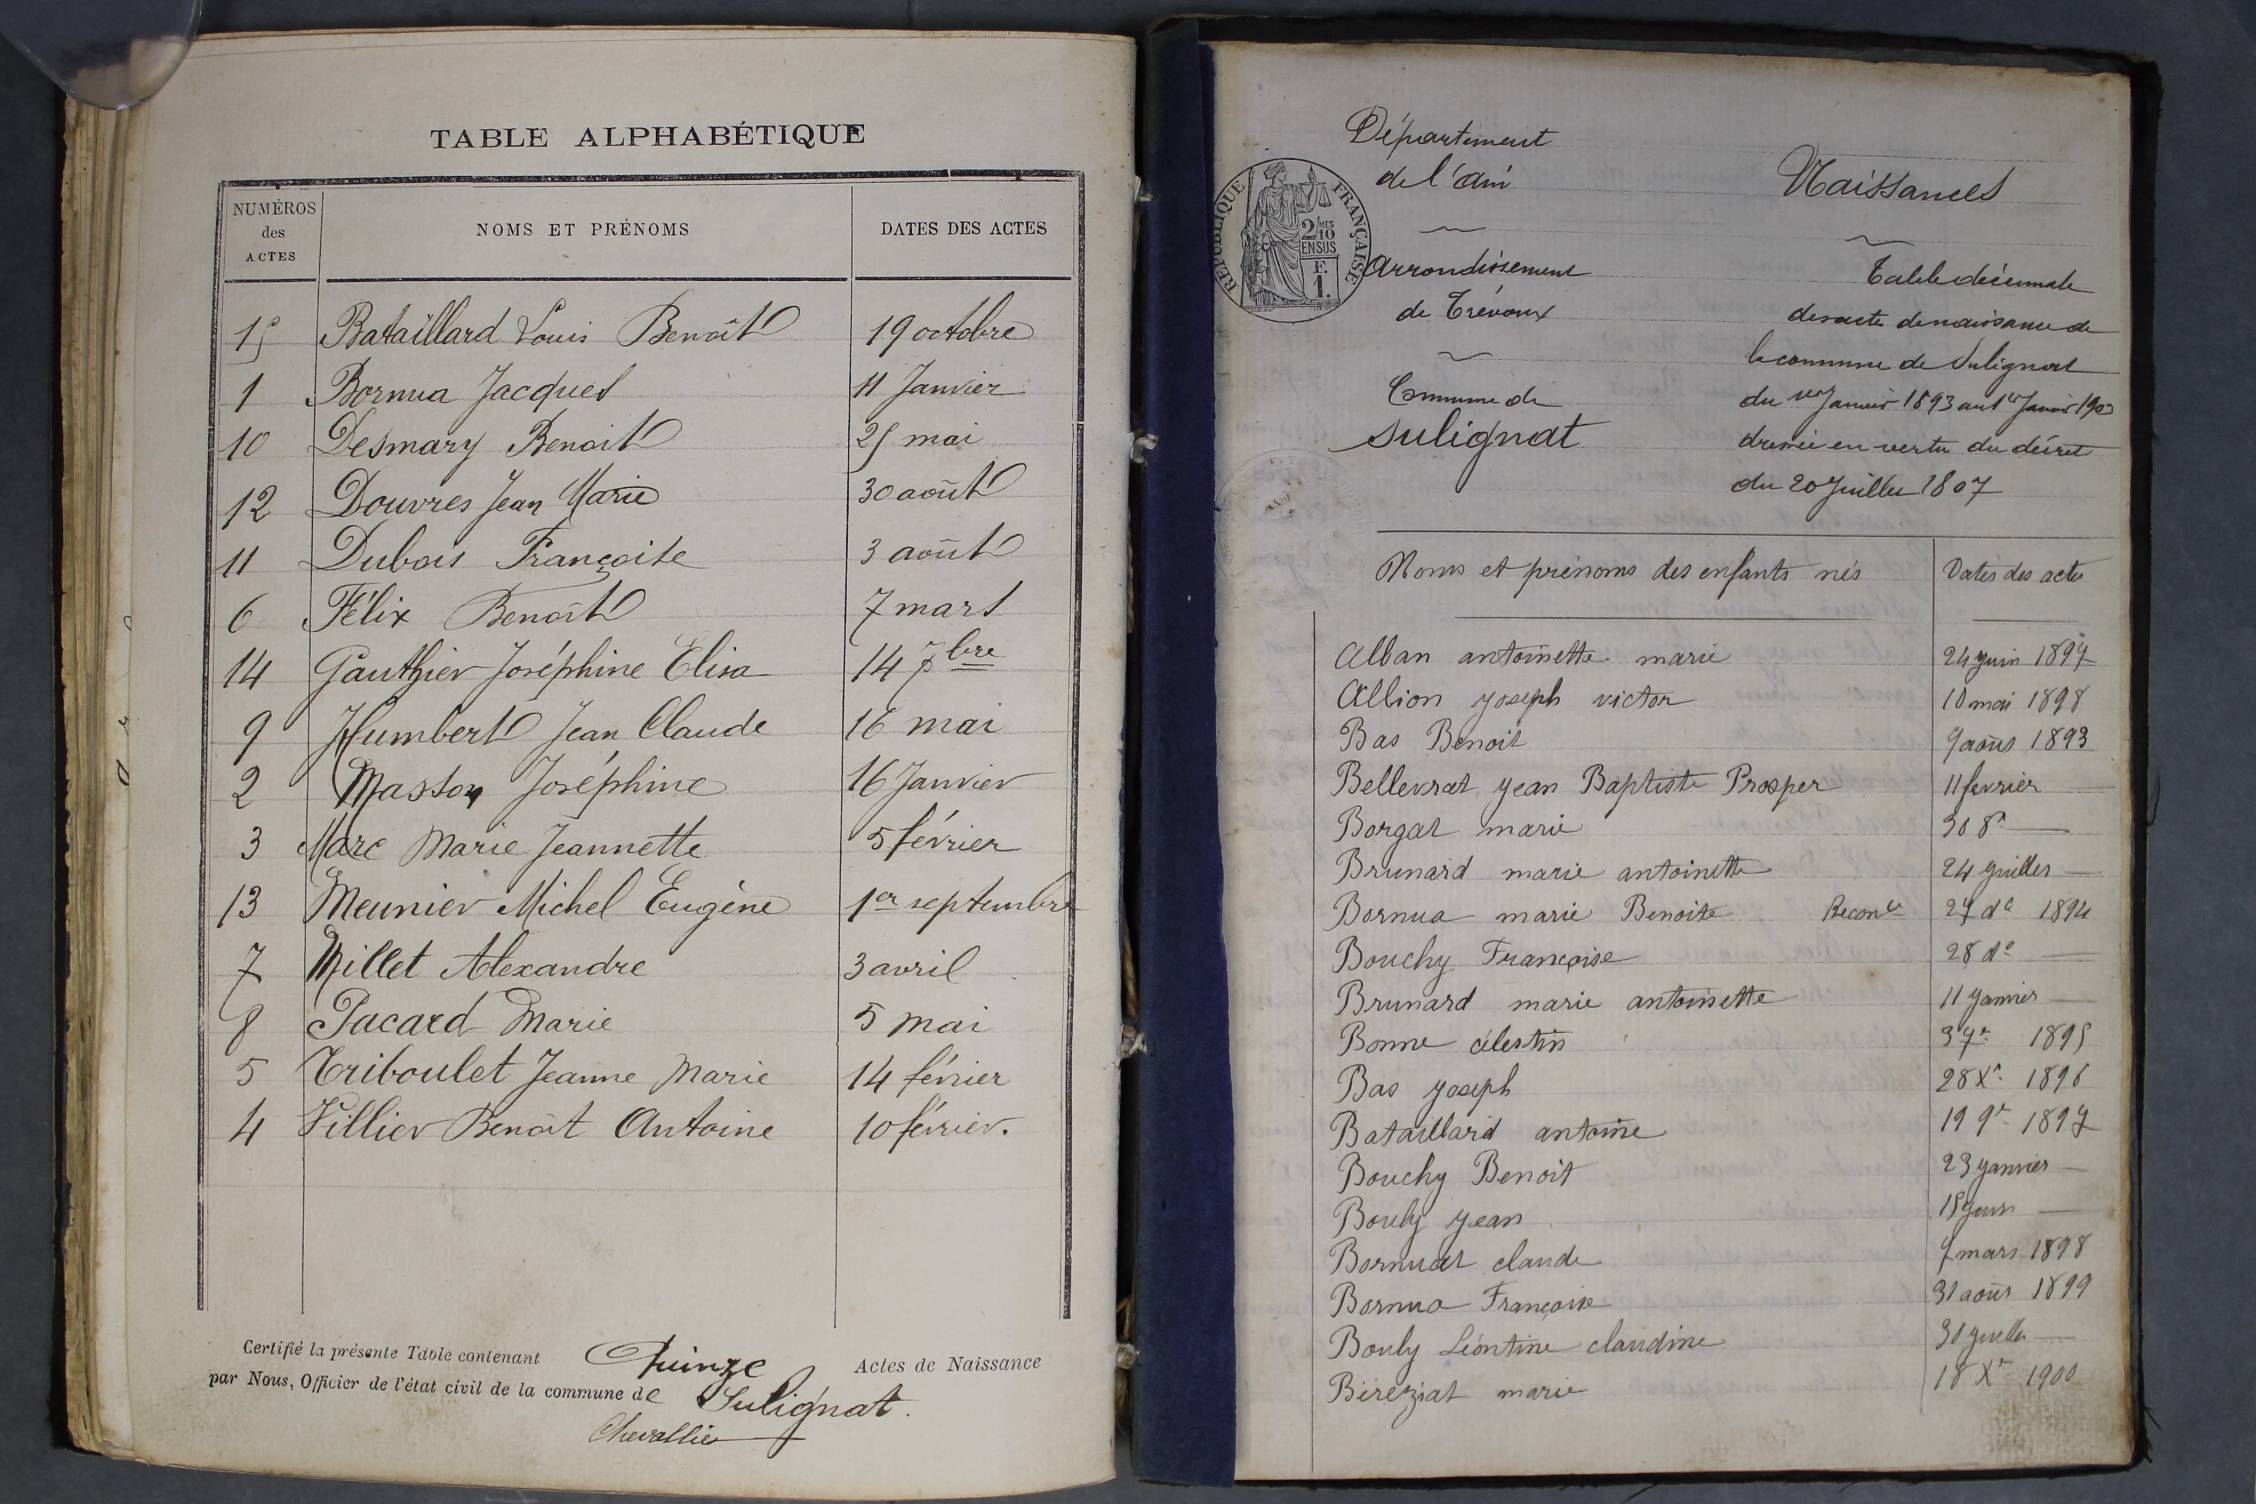 TABLE ALPHABÉTIQUE
NUMÉROS
des
ACTES
NOMS ET PRÉNOMS
DATES DES ACTES
15 Bataillard Louis Benoît 19 octobre
1 Bornua Jacques 11 Janvier
10 Desmary Benoit 25 mai
12 Douvres Jean Marie 30 août
11 Dubois Françoise 3 août
6 Félix Benoît 7 mars
14 Gauthier Joséphine Elisa 14 7bre
9 Humbert Jean Claude 16 mai
2 Masson Joséphine 16 Janvier
3 Marc Marie Jeannette 5 février
13 Meunier Michel Eugène 1er septembre
7 Millet Alexandre 3 avril
8 Pacard Marie 5 mai
5 Triboulet Jeanne Marie 14 février
4 Villier Benoît Antoine 10 février.
Certifié la présente Table contenant Quinze Actes de Naissance
par Nous, Officier de l'état civil de la commune de Sulignat.
Chevallier
Département
de l'Ain
Arrondissement
de Trévoux
Commune de
Sulignat
RÉPUBLIQUE FRANÇAISE
2/10 MES
EN SUS
F.
1.
Naissances
Table décennale
des actes de naissance de
la commune de Sulignat
du 1er Janvier 1893 au 1er Janvier 1903
dressée en vertu du décret
du 20 Juillet 1807
Noms et prénoms des enfants nés Dates des actes
Alban antoinette marie 24 juin 1897
Allion joseph victor 10 mai 1898
Bas Benoit 9 août 1893
Bellevrat jean Baptiste Prosper 11 fevrier —
Borgat marie 30 8e —
Brunard marie antoinette 24 juillet —
Bornua marie Benoite Reconce 27 do 1894
Bouchy Françoise 28 do —
Brunard marie antoinette 11 janvier —
Bonne célestin 3 7e 1895
Bas joseph 28 Xe 1896
Bataillard antoine 19 9e 1897
Bouchy Benoit 23 janvier —
Bouly jean 15 juin —
Bornuat claude 7 mars 1898
Bornua Françoise 31 août 1899
Bouly Léontine claudine 30 juillet —
Béréziat marie 18 Xe 1900